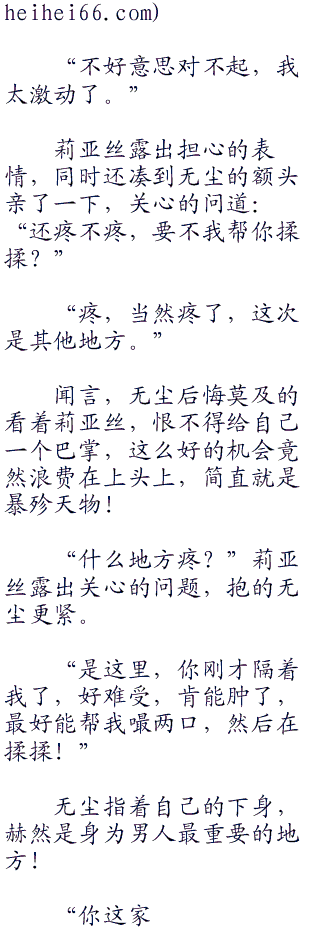 heihei66.com)
“不好意思对不起，我
太激动了。”
莉亚丝露出担心的表
情，同时还凑到无尘的额头
亲了一下，关心的问道：
“还疼不疼，要不我帮你揉
揉？”
“疼，当然疼了，这次
是其他地方。”
闻言，无尘后悔莫及的
看着莉亚丝，恨不得给自己
一个巴掌，这么好的机会竟
然浪费在上头上，简直就是
暴殄天物！
“什么地方疼？”莉亚
丝露出关心的问题，抱的无
尘更紧。
“是这里，你刚才隔着
我了，好难受，肯能肿了，
最好能帮我嘬两口，然后在
揉揉！”
无尘指着自己的下身，
赫然是身为男人最重要的地
方！
“你这家